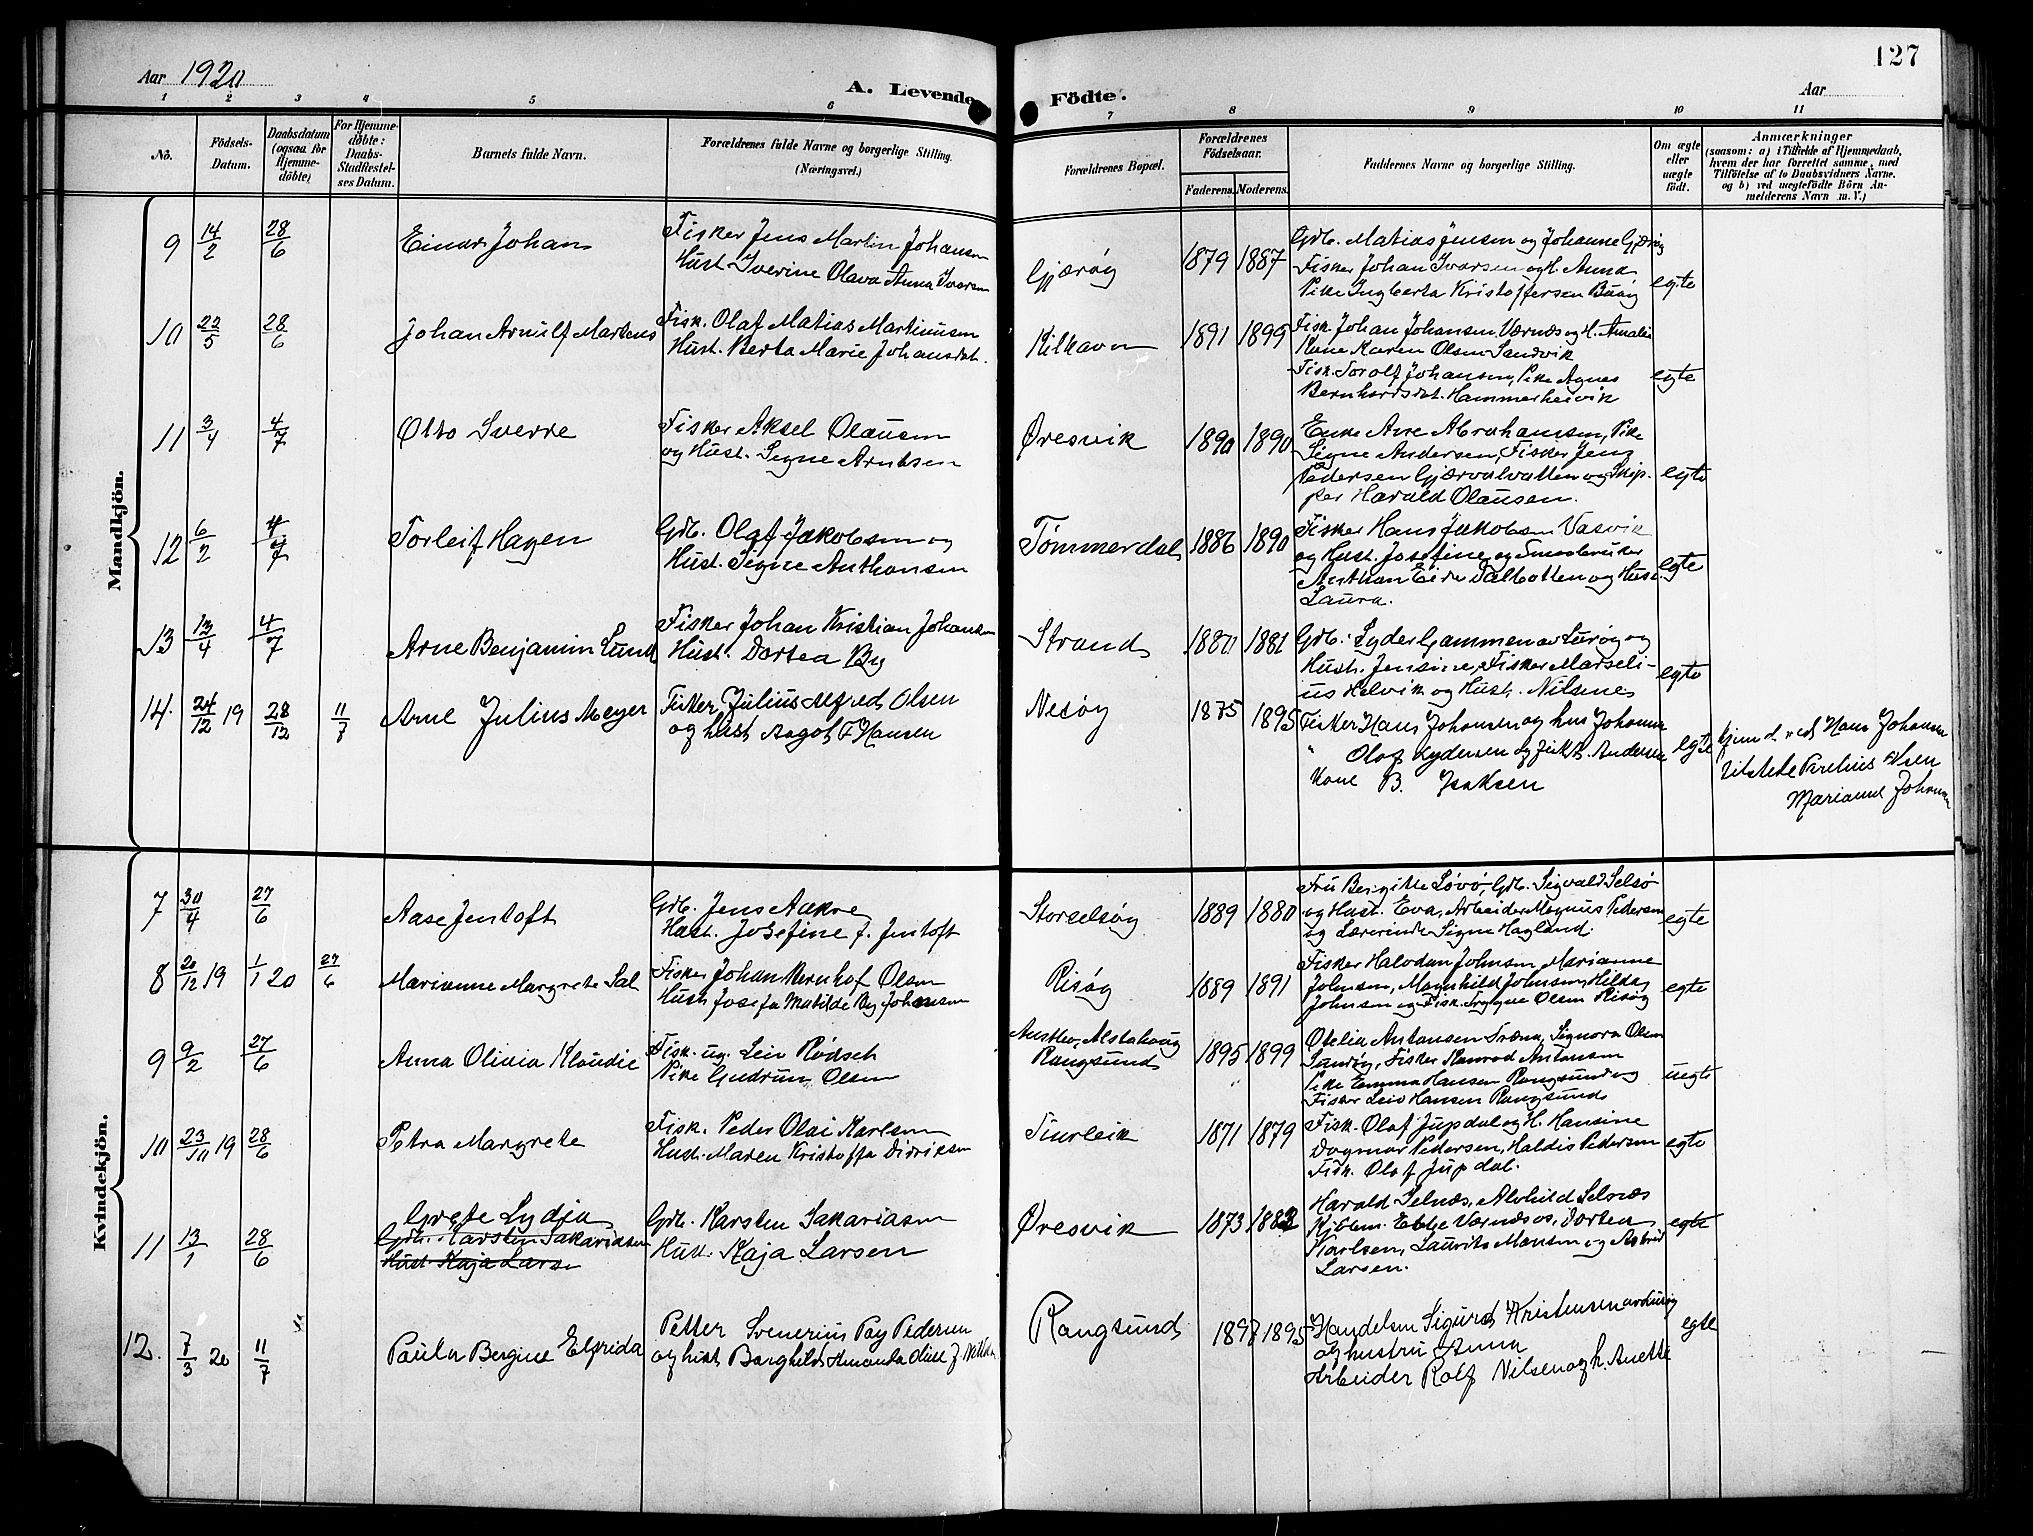 127
Aar 1920
A. Levende Födte.
Aar
1 2 3 4 5 6 7 8 9 10 11
No.
Födsels-Datum.
Daabsdatum (ogsaa for Hjemme-döbte)
For Hjemme-döbte: Daabs-Stadfæstel-ses Datum.
Barnets fulde Navn.
Forældrenes fulde Navne og borgerlige Stilling.
(Næringsvei.)
Forældrenes Bopæl.
Forældrenes Födselsaar.
Faderens. Moderens.
Faddernes Navne og borgerlige Stilling.
Om ægte eller uægte födt.
Anmærkninger
(saasom: a) i Tilfælde af Hjemmedaab, hvem der har forrettet samme, med Tilföielse af to Daabsvidners Navne. og b) ved uægtefödte Börn An-melderens Navn m. V.)
Mandkjön.
9 14/2 28/6 Einar Johan
Fisker Jens Martin Johansen
Hust. Iverine Olava Anna Ivarsen
Gjærøy 1879 1887
Gdb. Matias Jensen og Johanne Gjærøy
Fisker Johan Ivarsen og H. Anna
Pike Ingberta Kristoffersen Buøy
egte
10 22/5 28/6 Johan Arnulf Martens
Fisk. Olaf Matias Martinusen
Hust. Berta Marie Johansdat.
Kilhavn 1891 1899
Fisk. Johan Johansen Værnæs og H. Amalie
Kone Karen Olsen Sandvik
Fisk. Torolf Johansen, Pike Agnes
Bernhardsdat. Hammerheivik
egte
11 3/4 4/7 Otto Sverre
Fisker Aksel Olausen
og Hust. Signe Arntsen
Øresvik 1890 1890
Enke Ane Abrahamsen, Pike
Signe Andersen, Fisker Jens
Pedersen Gjærvalvatten og Skip-
per Harald Olausen.
egte
12 6/2 4/7 Torleif Hagen
Gdb. Olaf Jakobsen og
Hust. Signe Anthonsen
Tømmerdal 1886 1890
Fisker Hans Jakobsen Vasvik
og Hust. Josefine og Smaabruker
Anthon Eide Dalbotten og Hust.
Laura.
egte
13 13/4 4/7 Arne Benjamin Lund
Fisker Johan Kristian Johansen
Hust. Dortea By
Strand 1880 1881
Gdb. Lyder Gammen av Lurøy og
Hust. Jensine, Fisker Marseli-
us Helvik og Hust. Nilsine
egte
14. 24/12 19 28/12 11/7 Arne Julius Meyer
Fisker Julius Alfred Olsen
og hust Aagot F Hansen
Nesøy 1875 1895
Fisker Hans Johansen og hus Johanna
" Olaf Lydersen og Fisk. Andersen
Kone B. Isaksen
egte
hjem d. ved Hans Johansen
tilstede Parelius Olsen
Mariane Johansen
Kvindekjön.
7 30/4 27/6 Aase Jentoft
Gdb. Jens Aakre
Hust. Josefine f. Jentoft
Storselsøy 1889 1880
Fru Bergitte Løvø, Gdb. Sigvald Selsø
og Hust. Eva, Arbeider Magnus Pedersen
og Lærerinde Signe Hagland.
egte
8 20/12 19 1/1 20 27/6 Marianne Margrete Sal
Fisker Johan Bernhof Olsen
Hust Josefa Matilde By Johansen
Risøy 1889 1891
Fisker Halvdan Johnsen Marianne
Johnsen, Magnhild Johnsen, Hilda
Johnsen og Fisk. Trygve Olsen Risøy
egte
9 9/2 27/6 Anna Olivia Klaudie
Fisk. ug. Leiv Rødseth
Pike Gudrun Olsen
Austbø, Alstahaug
Rangsund 1895 1899
Otelia Antonsen Træna, Signora Olsen
Sandøy, Fisker Konrad Antonsen
Pike Emma Hansen Rangsund og
Fisker Leiv Hansen Rangsund
uegte
10 23/10 19 28/6 Petra Margrete
Fisk. Peder Olai Karlsen
Hust. Maren Kristoffa Didriksen
1871 1879
Fisk. Olaf Jupdal og H. Hansine
Dagmar Pedersen, Haldis Pedersen
Fisk. Olaf Jupdal.
egte
11 13/1 28/6 Grete Lydia
Gdb. Karsten Sakariasen
Hust. Kaja Larsen
Gdb. Karsten Sakariasen
Hust. Kaja Larsen
Øresvik 1873 1883
Harald Selnæs, Alvhild Selnæs
Kjøbm. Ebbe Værnesos, Dorten
Karlsen, Laurits Monsen og Astrid
Larsen.
egte
12. 7/3 20 11/7 Paula Bergine Elfrida
Petter Svenerius Pay Pedersen
og hust Borghild Amanda Oline J Nilsen
Rangsund 1897 1895
Handelsm Sigurd Kristensen av Lurøy
og hustru Anna
Arbeider Rolf Nilsen og h. Anette
egte